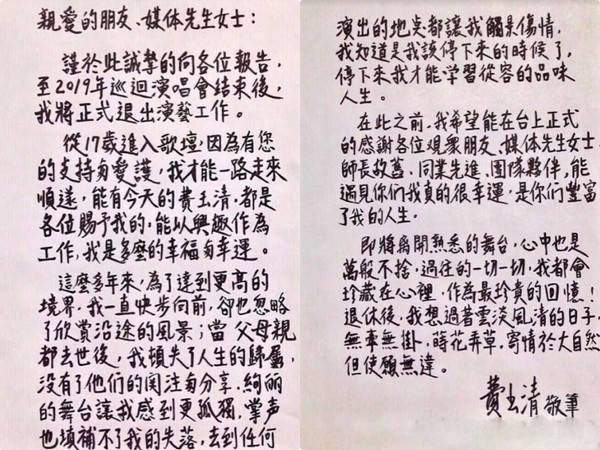 親愛的朋友、媒体先生女士：
謹於此誠摯的向各位報告，
至2019年巡迴演唱會結束後，
我將正式退出演藝工作。
從17歲進入歌壇，因為有您
的支持与愛護，我才能一路走來
順遂，能有今天的費玉清，都是
各位賜予我的，能以興趣作為
工作，我是多麼的幸福与幸運。
這麼多年來，為了達到更高的
境界，我一直快步向前，卻也忽略
了欣賞沿途的風景；當父母親
都去世後，我頓失了人生的歸屬，
沒有了他們的関注与分享，絢麗
的舞台讓我感到更孤獨，掌声
也填補不了我的失落，去到任何
演出的地点都讓我觸景傷情，
我知道是我該停下來的時候了，
停下來我才能学習從容的品味
人生。
在此之前，我希望能在台上正式
的感謝各位觀衆朋友、媒体先生女士、
師長故舊、同業先進、団隊夥伴，能
遇見你們我真的很幸運，是你們豐富
了我的人生。
即將離開熟悉的舞台，心中也是
萬般不捨，過往的一切一切，我都會
珍藏在心裡，作為最珍貴的回憶！
退休後，我想過著雲淡風清的日子，
無牽無掛，蒔花弄草，寄情於大自然
但使願無違。
費玉清 敬筆